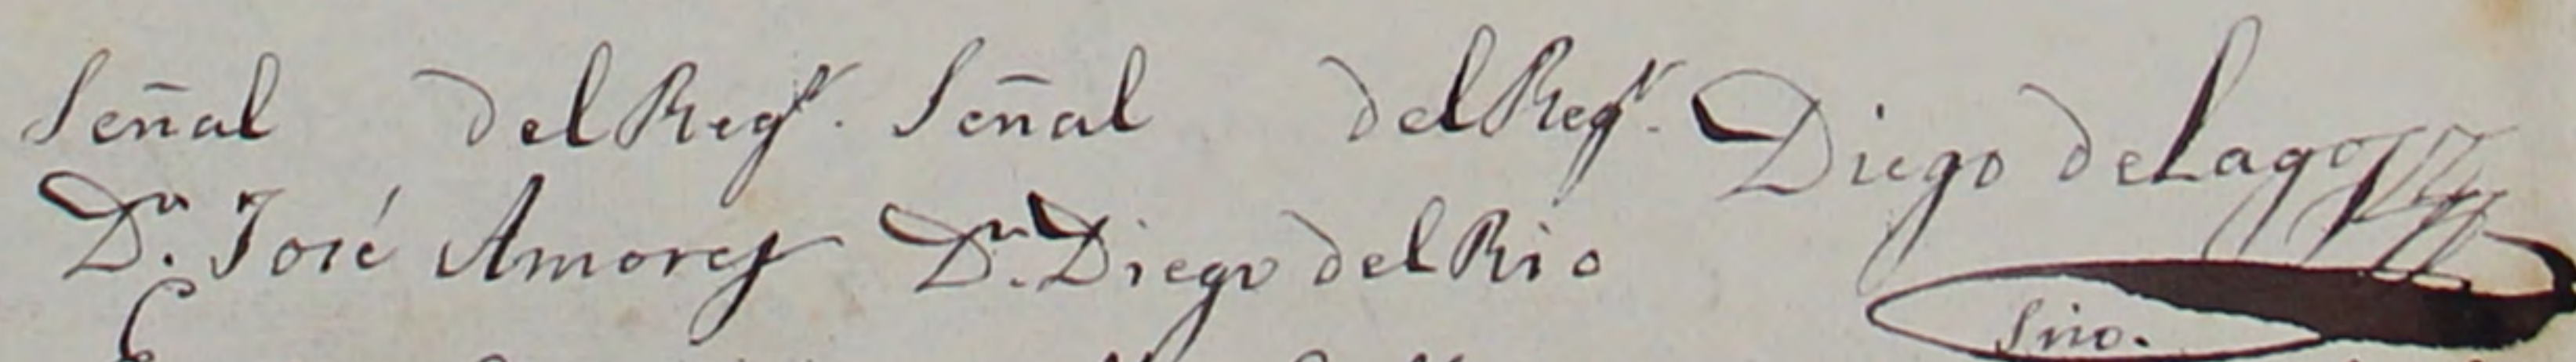 Señal del Regr. Señal del Regr. Diego de Lago
Dn. José Amores Dn. Diego del Rio
Srio.